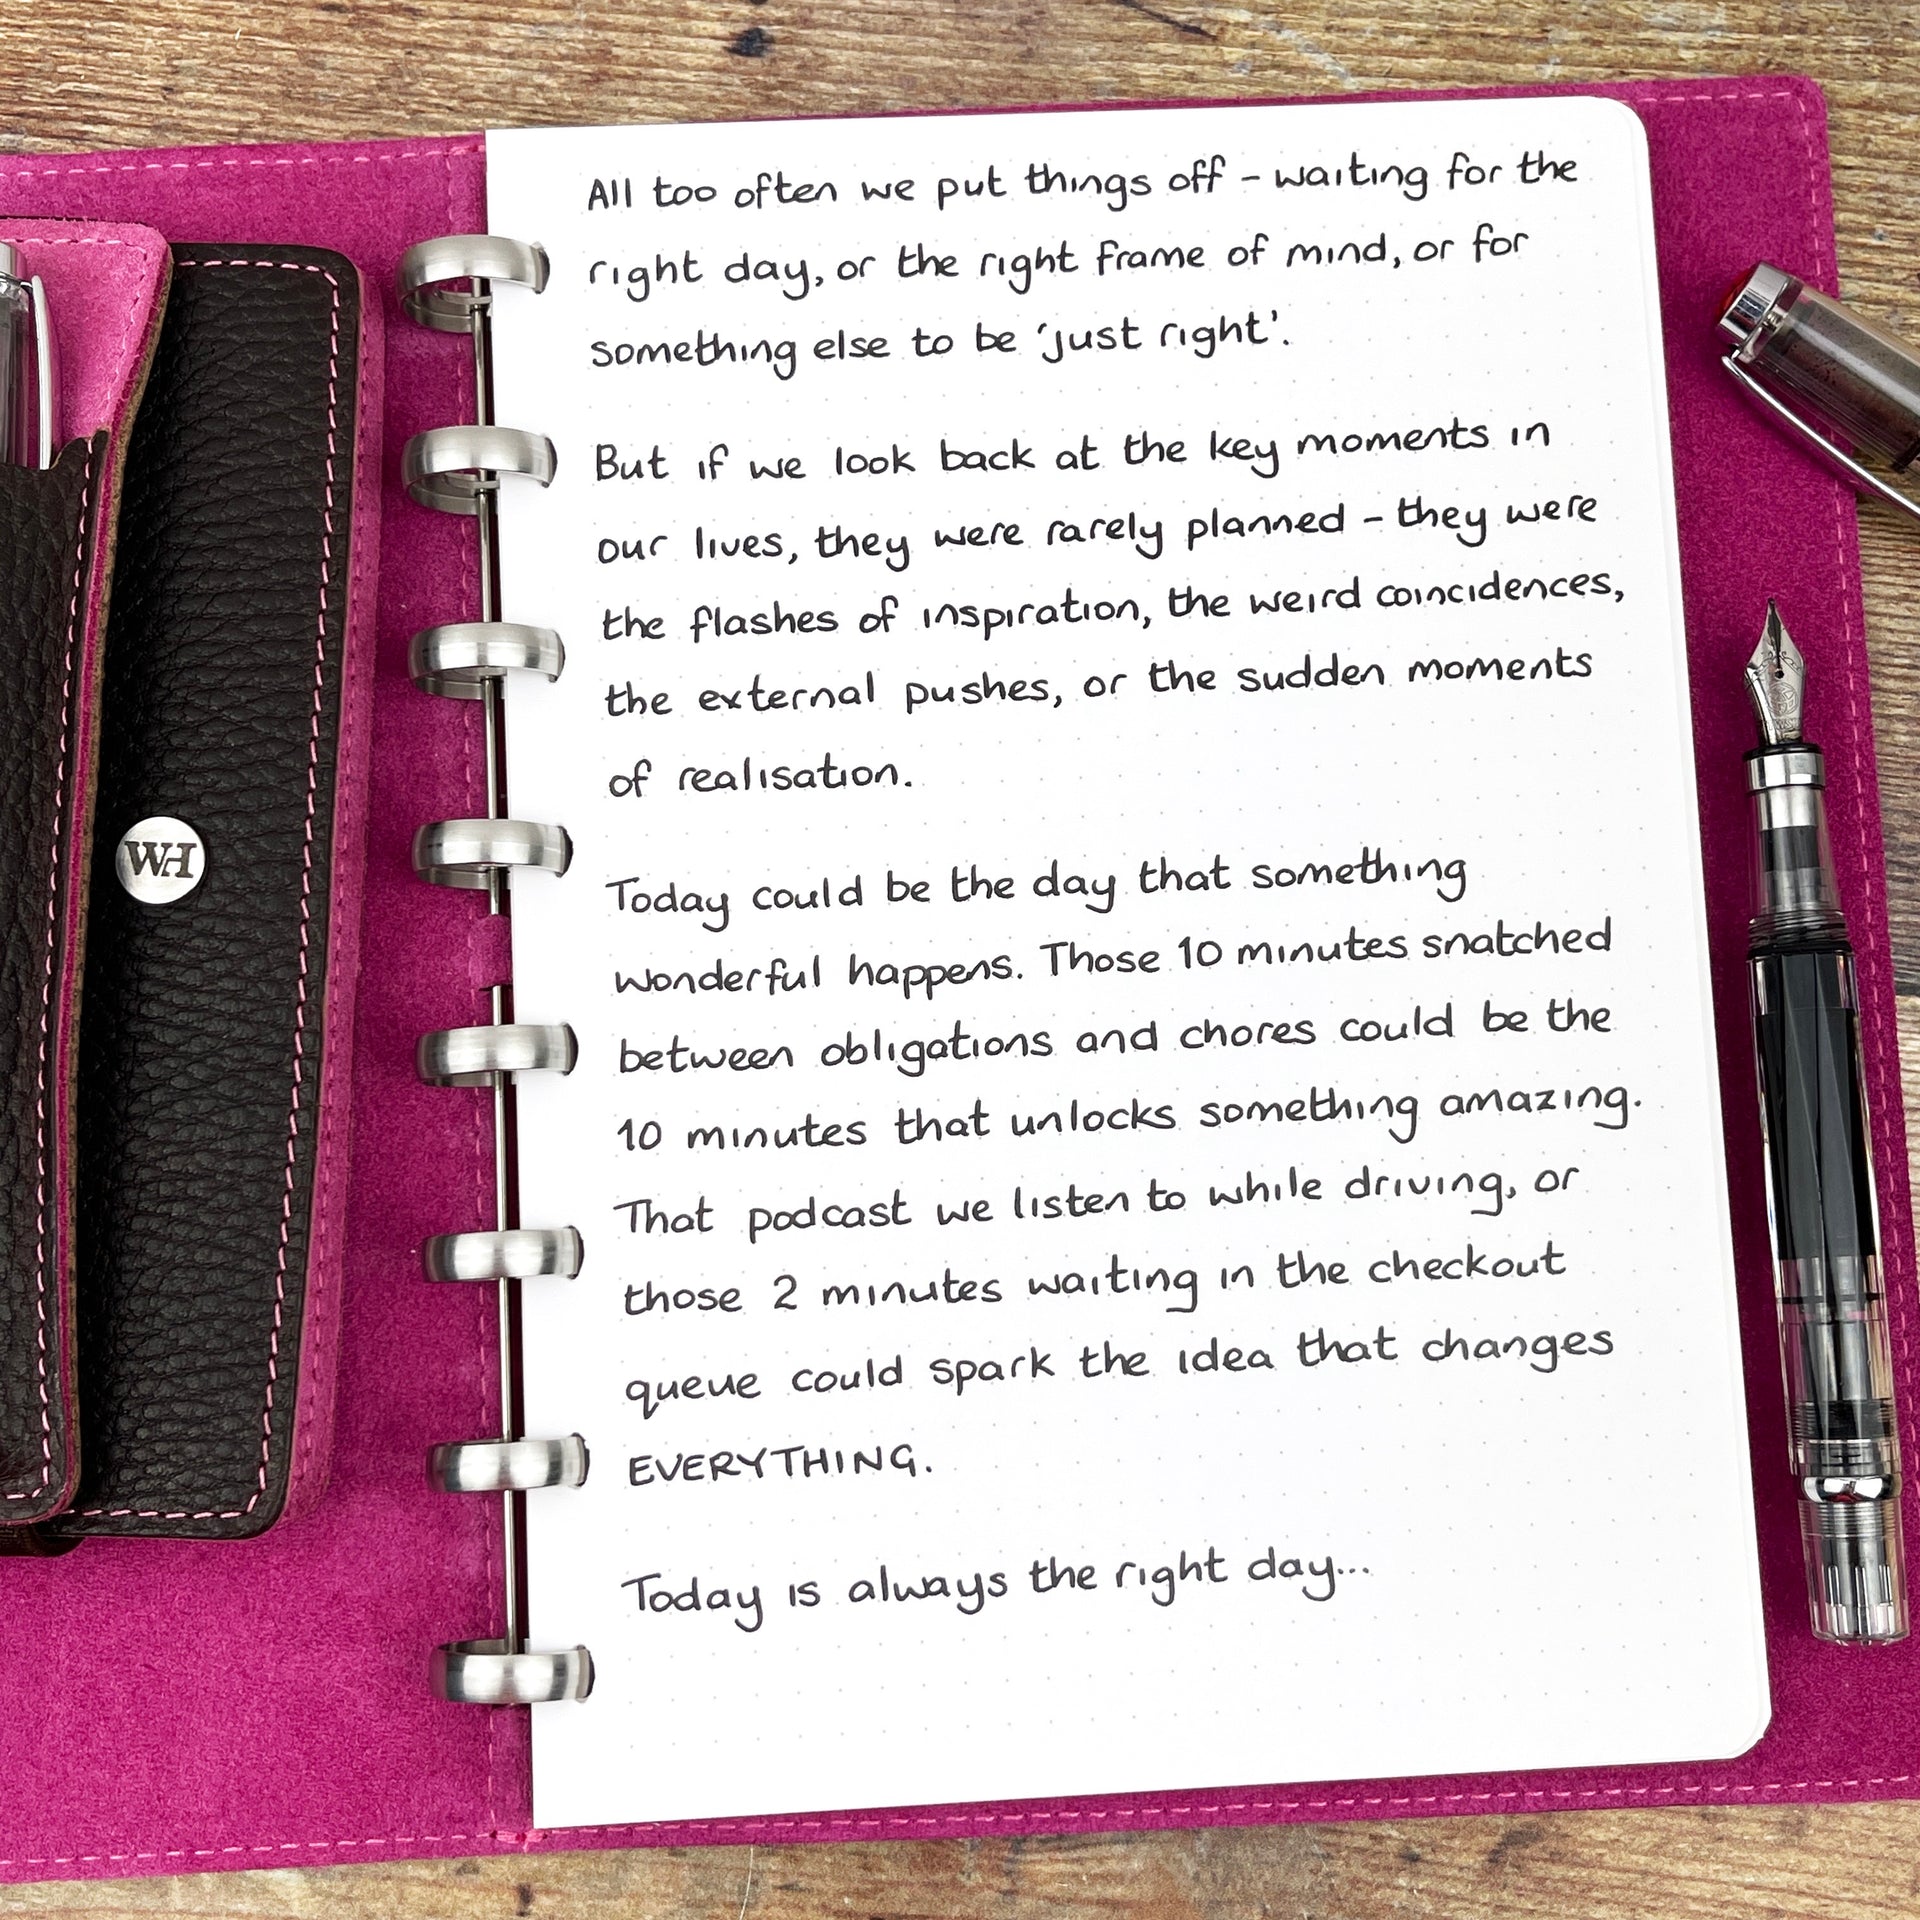 All too often we put things off - waiting for the
right day, or the right frame of mind, or for
something else to be 'just right'.
But if we look back at the key moments in
our lives, they were rarely planned - they were
the flashes of inspiration, the weird coincidences,
the external pushes, or the sudden moments
of realisation.
Today could be the day that something
wonderful happens. Those 10 minutes snatched
between obligations and chores could be the
10 minutes that unlocks something amazing.
That podcast we listen to while driving, or
those 2 minutes waiting in the checkout
queue could spark the idea that changes
EVERYTHING.
Today is always the right day...
WH